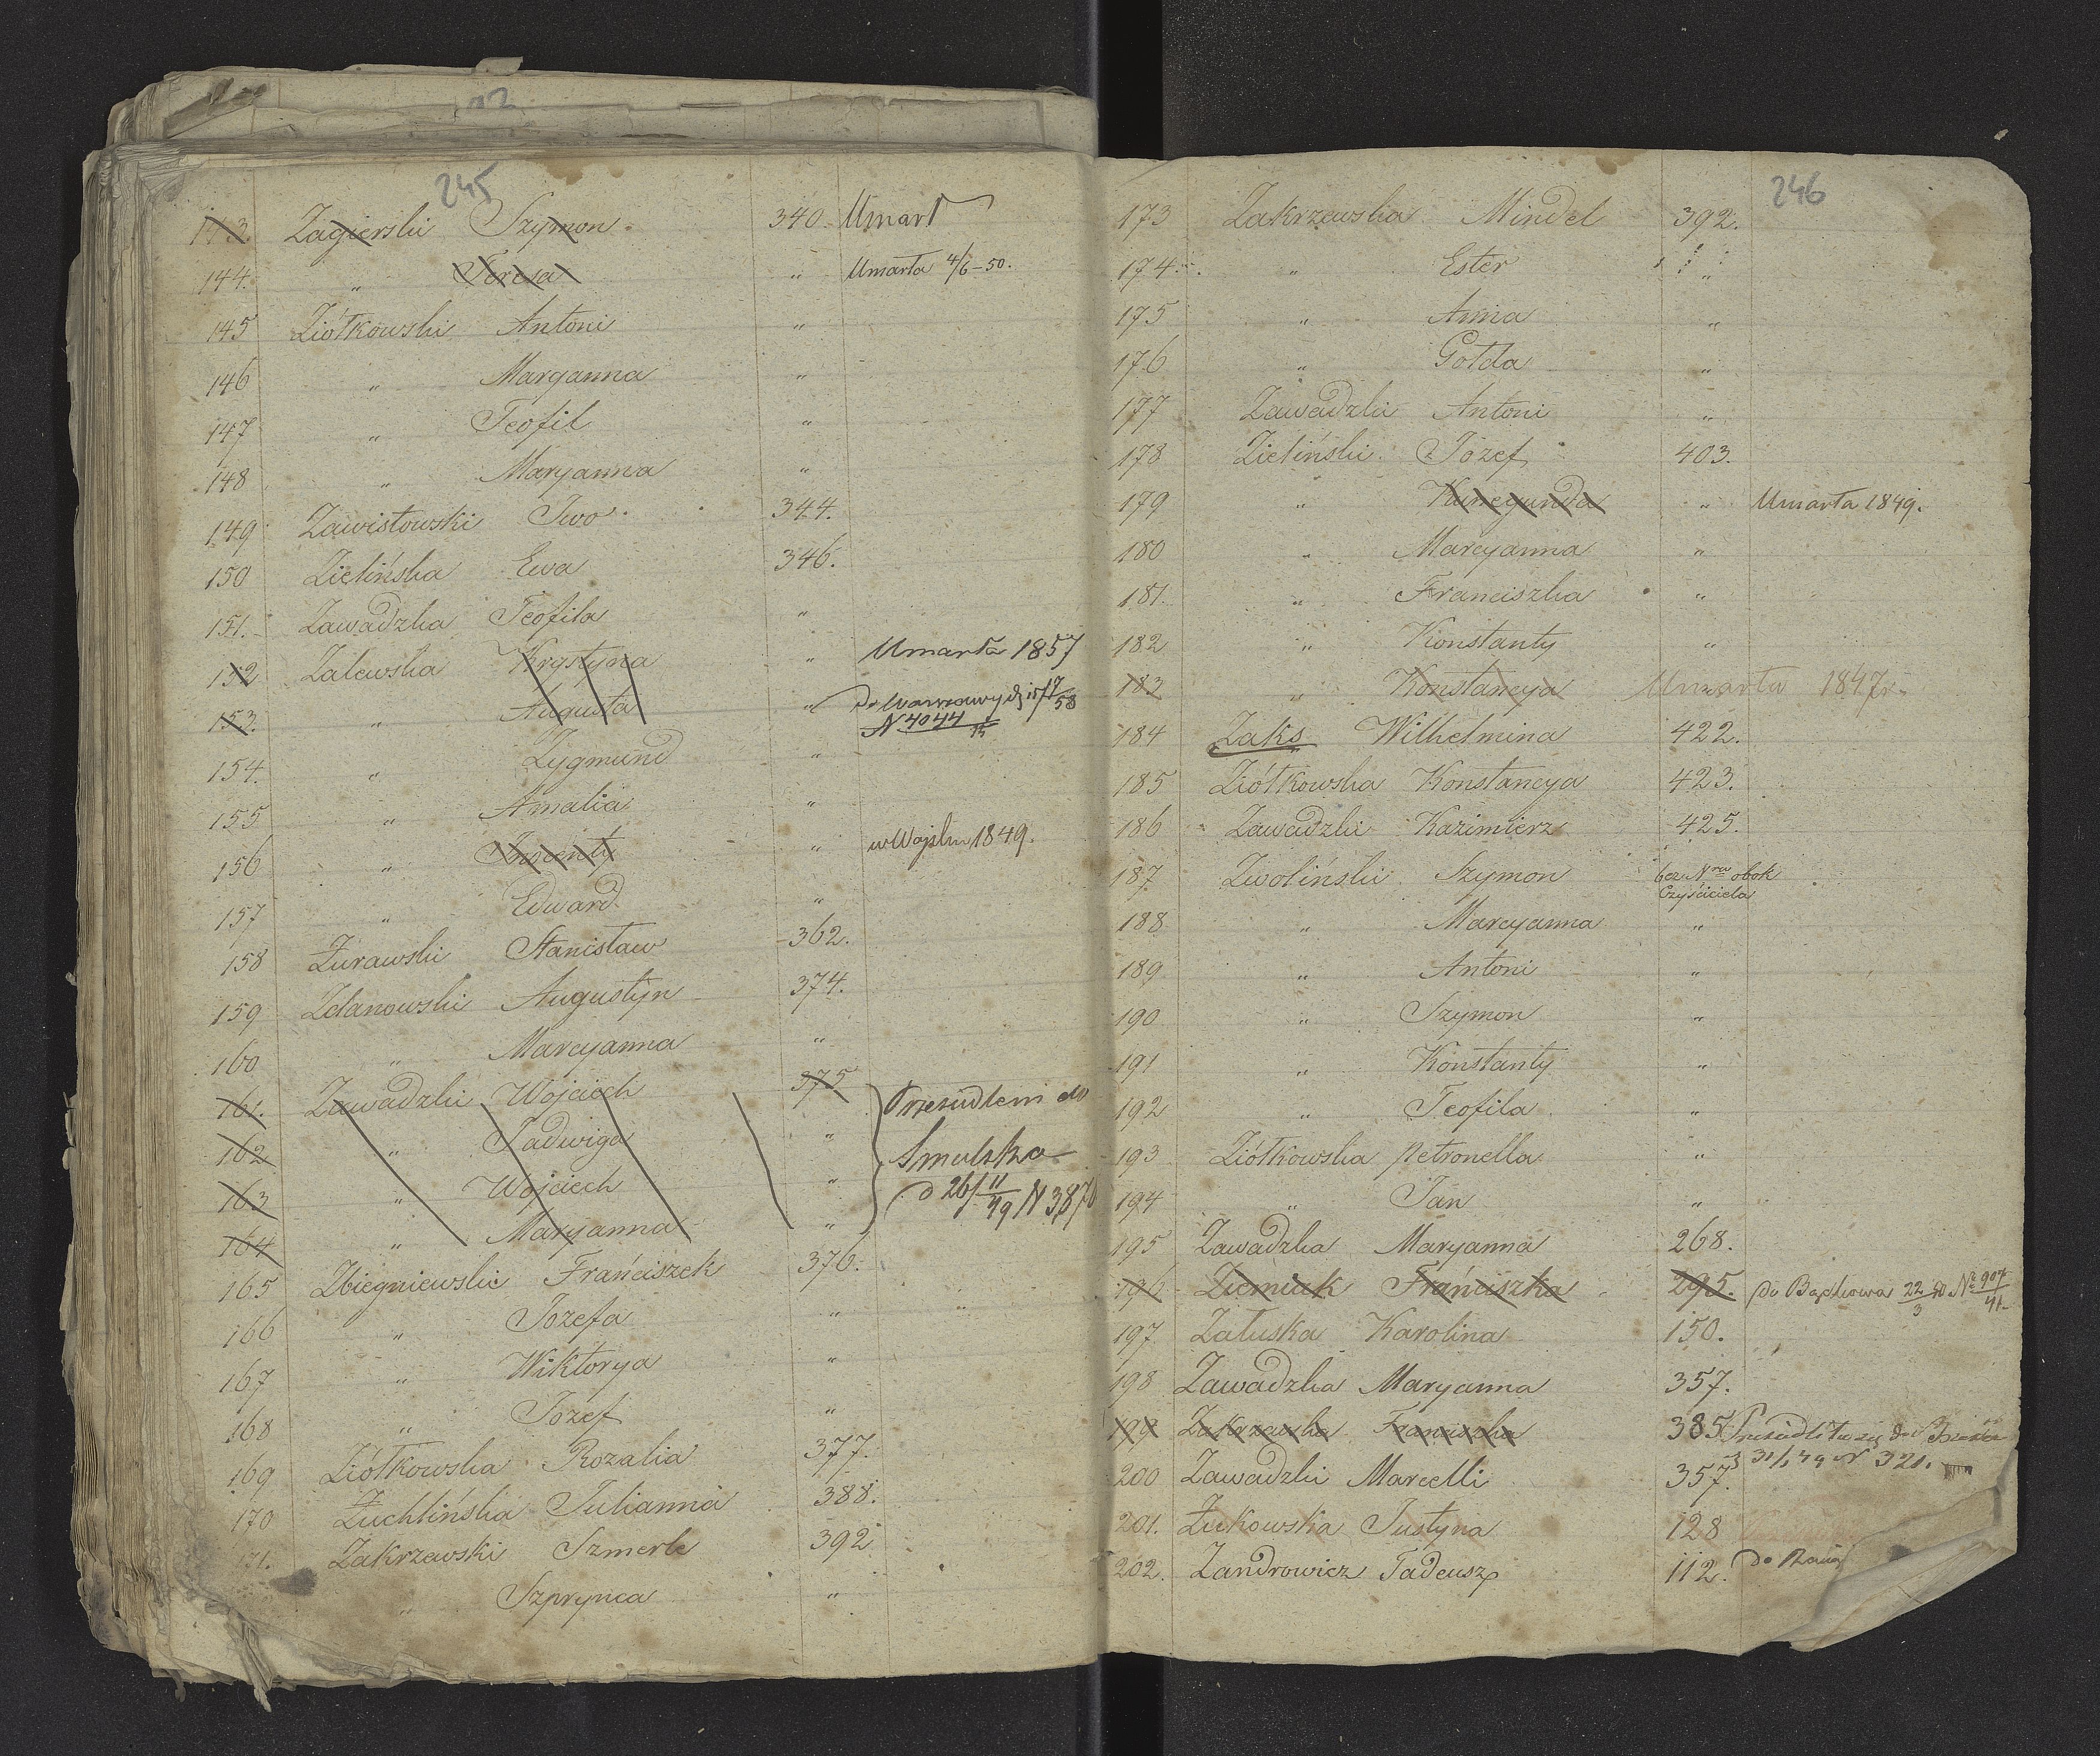 245
143. Zagierski Szymon 340. Umarł
144. " Teresa " Umarła 4/6-50.
145 Ziółkowski Antoni "
146 " Maryanna "
147 " Teofil "
148 " Maryanna "
149 Zawistowski Iwo 344.
150 Zielińska Ewa 346.
151. Zawadzka Teofila "
152 Zalewska Krystyna " Umarła 1857
153. " Augusta " do Warszawy
N 4044
154. " Zygmund "
155 " Amalia "
156 " " w Wojsku 1849.
157 " Edward "
158 Żurawski Stanisław 362.
159 Zdanowski Augustyn 374.
160 " Marcyanna "
161. Zawadzki Wojciech 375 Przesiedleni do
162 " Jadwiga " Smulska
163 " Wojciech " d 26/11 49 N 387
164 " Maryanna "
165 Zbiegniewski Franciszek 376.
166 " Józefa " "
167 " Wiktorya "
168 " Józef "
169 Ziółkowska Rozalia 377.
170 Żuchlińska Julianna 388.
171. Zakrzewski Szmerle 392
" Szprynca "
246
173 Zakrzewska Mindel 392.
174 " Ester "
175 " Anna "
176 " Gołda "
177 Zawadzki Antoni "
178 Zieliński Józef 403.
179 " Kunegunda " Umarła 1849.
180 " Marcyanna "
181. " Franciszka "
182 " Konstanty "
183 " Konstancya Umarła 1847r.
184 Zaks Wilhelmina 422.
185 Ziółkowska Konstancya 423.
186 Zawadzki Kazimierz 425.
187 Zwoliński Szymon bez Nra obok
Czyściciela
188 " Marcyanna "
189 " Antoni "
190 " Szymon "
191 " Konstanty "
192 " Teofila "
193 Ziółkowska Petronella "
194 " Jan "
195 Zawadzka Maryanna 268.
196 Ziemiak Franciszka 295. do Bądkowa 22/3 No 907/41
197 Załuska Karolina 150.
198 Zawadzka Maryanna 357.
199 Zakrzewska Franciszka 385 Przesiedliła się do
31/1 49 N 321.
200 Zawadzki Marcelli 357.
201. Żukowska Justyna 128
202. Zandrowicz Tadeusz 112. do